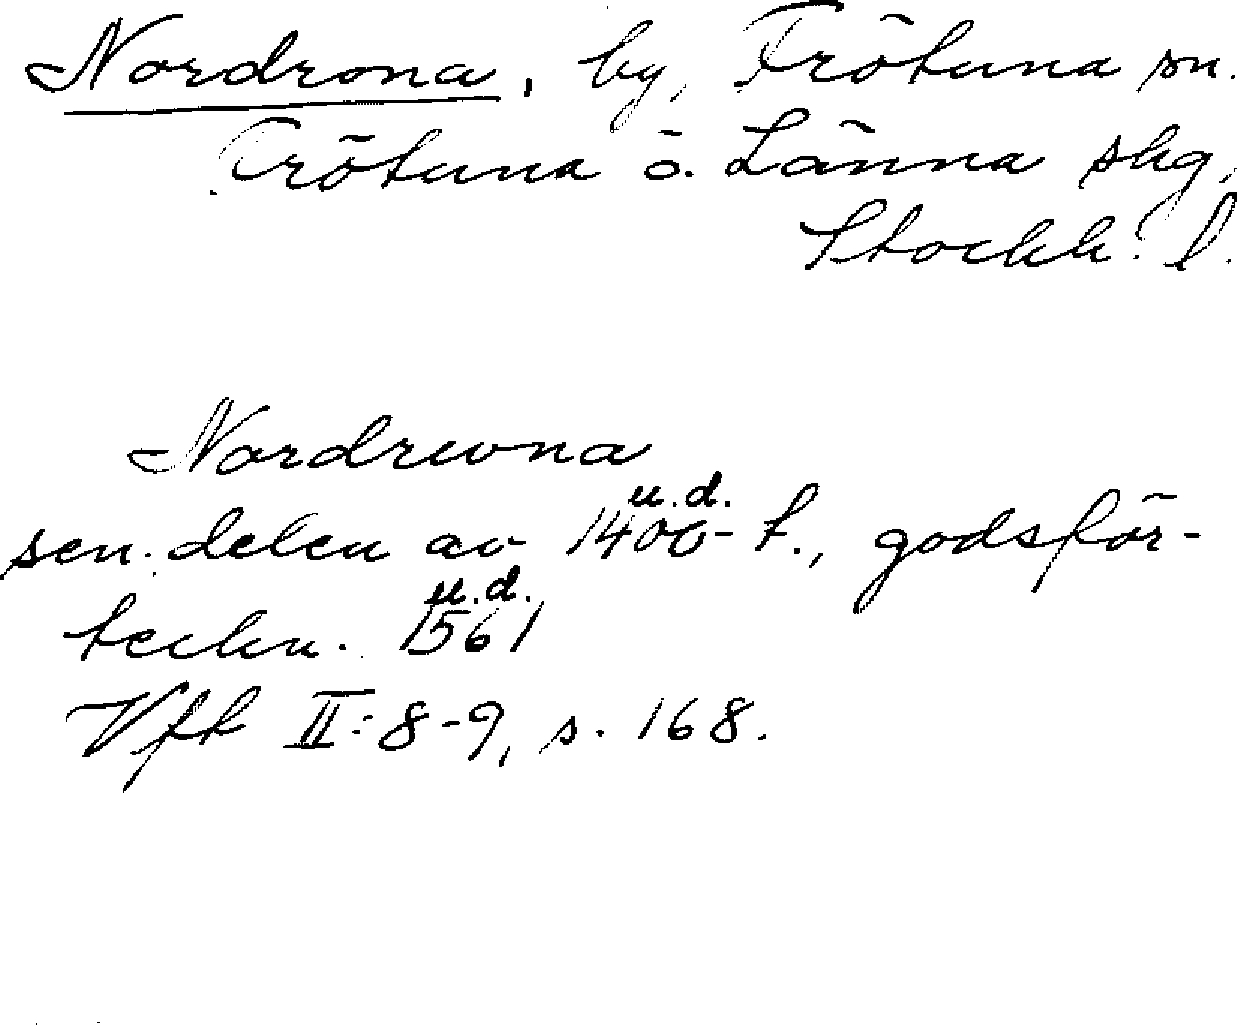 Nordrona, by, Frötuna sn.
Frötuna o. Länna skg,
Stockh. l.
Nordreuna
u.d.
sen. delen av 1400-t., godsför-
u.d.
teckn. 1561
Vfk II:8-9, s. 168.